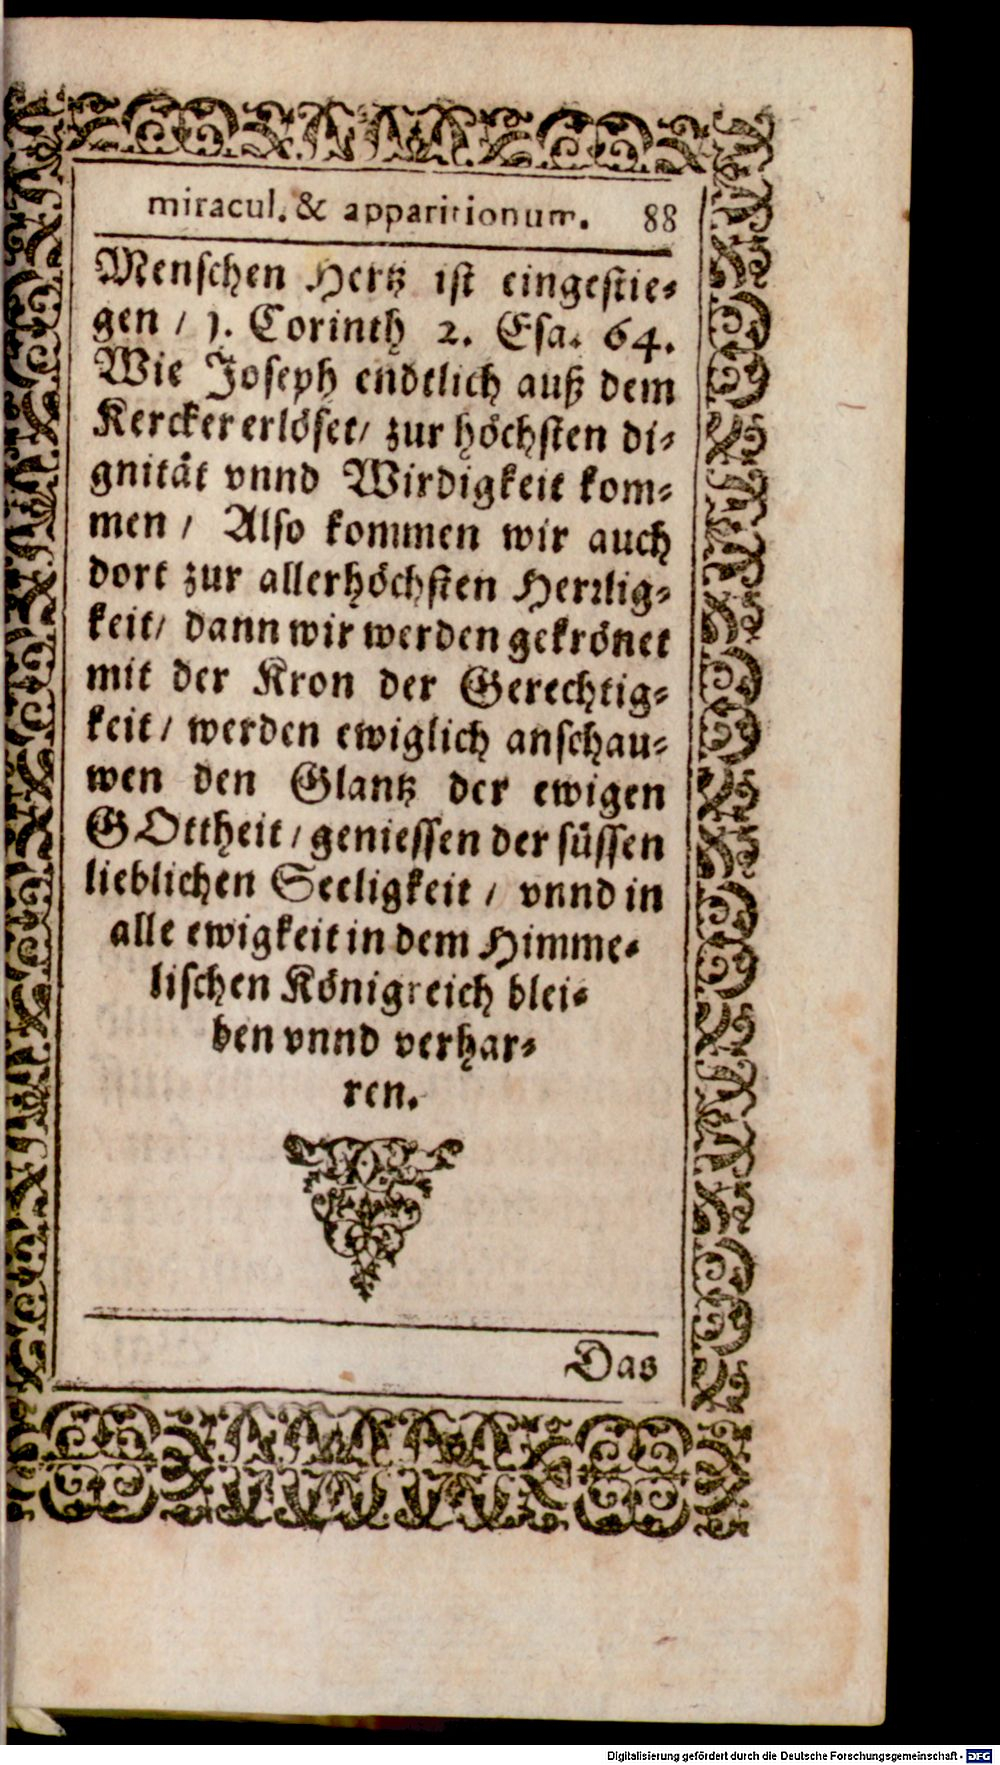 miracul. & apparitionum. 88
Menschen Hertz ist eingestie-
gen / 1. Corinth 2. Esa. 64.
Wie Joseph endtlich auß dem
Kercker erlöset / zur höchsten di-
gnität vnnd Wirdigkeit kom-
men / Also kommen wir auch
dort zur allerhöchsten Herrlig-
keit / dann wir werden gekrönet
mit der Kron der Gerechtig-
keit / werden ewiglich anschau-
wen den Glantz der ewigen
GOttheit / geniessen der süssen
lieblichen Seeligkeit / vnnd in
alle ewigkeit in dem Himme-
lischen Königreich blei-
ben vnnd verhar-
ren.
Das
Digitalisierung gefördert durch die Deutsche Forschungsgemeinschaft - DFG